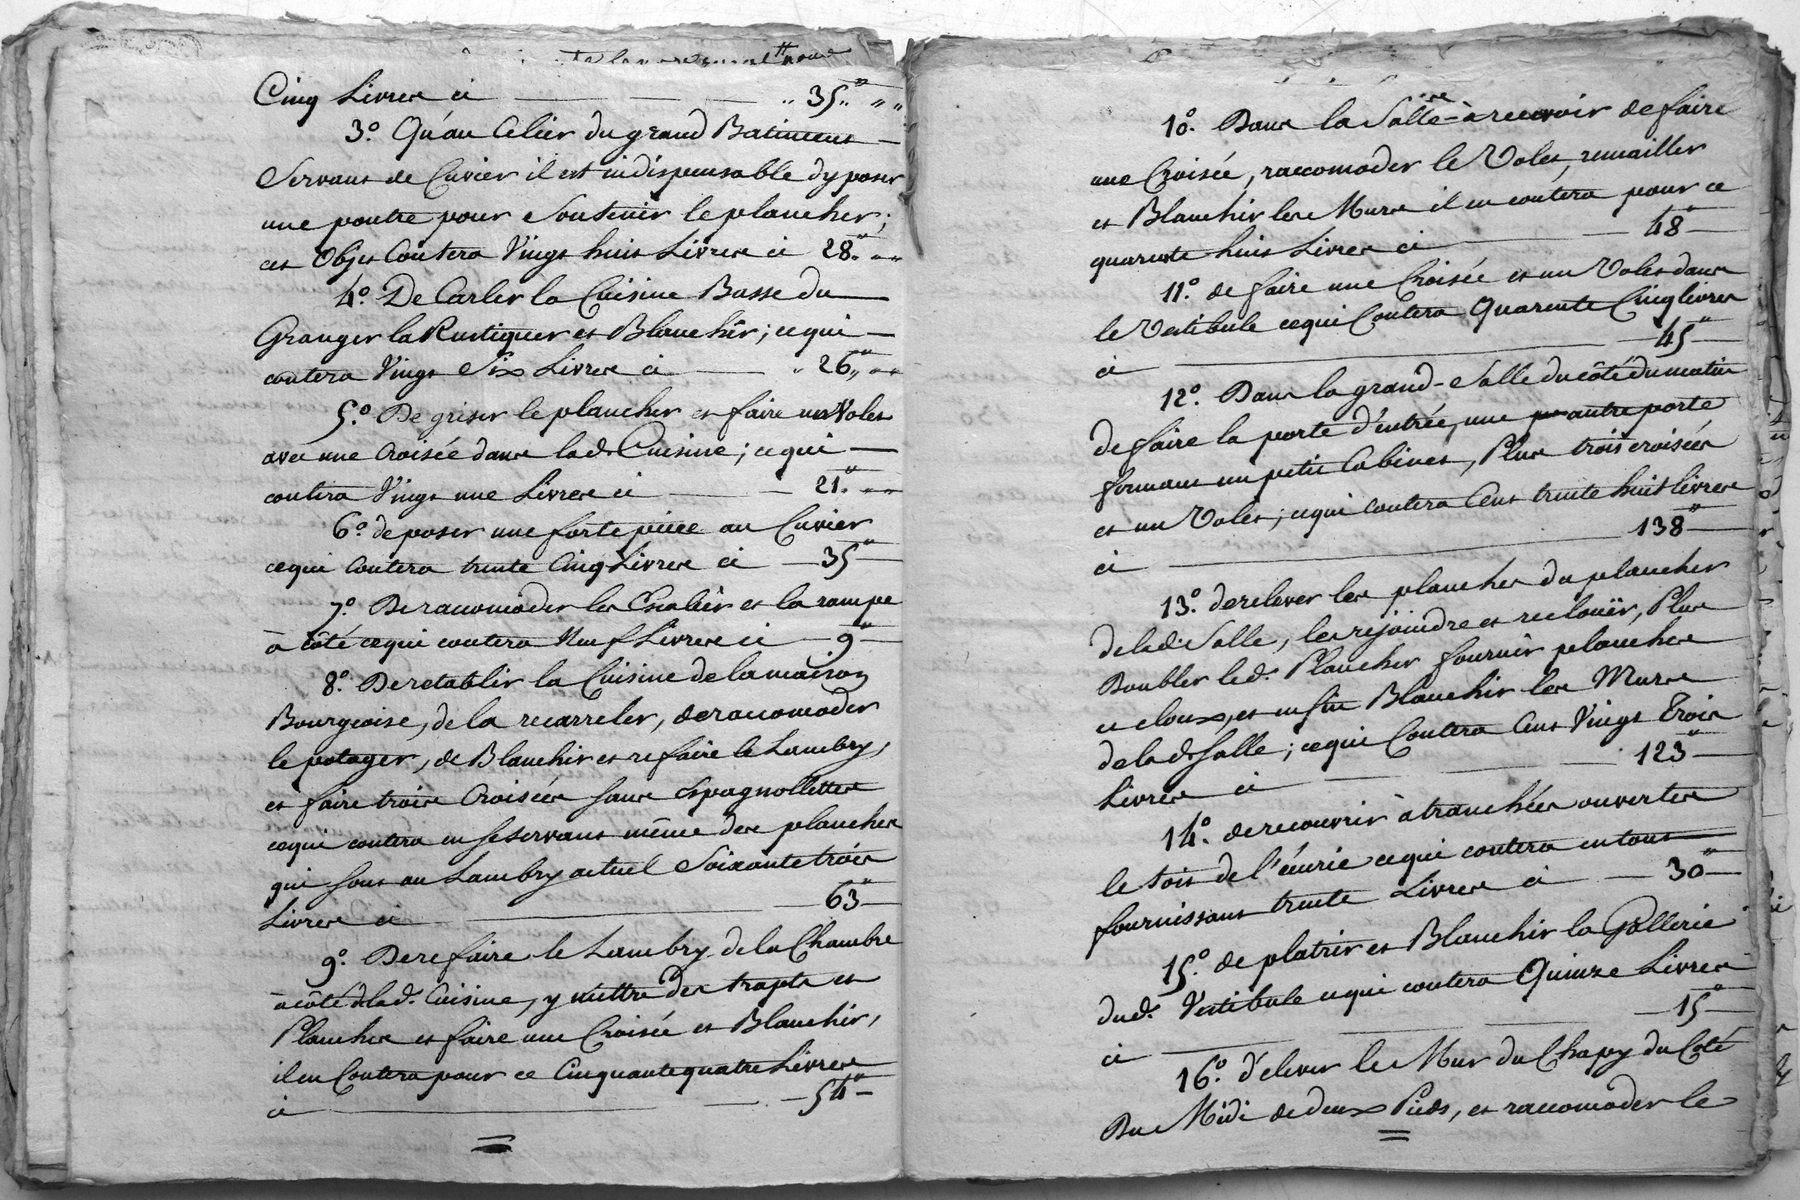 Cinq Livres ci — 35" " "
3°. Qu'au Celier du grand Batiment
Servant de Cuvier il est indispensable d'y poser
une poutre pour Soutenir le plancher ;
cet Objet Coutera Vingt huit Livres ci 28" " "
4°. De Carler la Cuisine Basse du
Granger la Rustiquer et Blanchir ; ce qui
coutera Vingt Six Livres ci — 26" " "
5°. De griser le plancher et faire un Volet
avec une Croisée dans lad. Cuisine ; ce qui
coutera Vingt une Livres ci — 21" " "
6°. de poser une forte piece au Cuvier
ce qui Coutera trente Cinq Livres ci — 35"
7°. De racomoder les Escalier et la rampe
à côté ce qui coutera Neuf Livres ci — 9"
8°. De retablir la Cuisine de la maison
Bourgeoise, de la recarreler, de racomoder
le potager, de Blanchir et refaire le Lambry,
et faire trois Croisées sans Espagnollettes
ce qui coutera en se servant même des planches
qui sont au Lambry actuel Soixante trois
Livres ci — 63"
9°. De refaire le Lambry de la Chambre
à côté de lad. Cuisine, y mettre des trapts et
Planches et faire une Croisée et Blanchir,
il en Coutera pour ce Cinquante quatre Livres
ci — 54"
10°. Dans la Salle à recevoir de faire
une Croisée, raccomoder le Volet, remailler
et Blanchir les Murs il en coutera pour ce
quarente huit Livres ci — 48"
11°. de faire une Croisée et un Volet dans
le Vestibule ce qui Coutera Quarente Cinq livres
ci — 45"
12°. Dans la grand-Salle du côté du matin
de faire la porte d'entrée, une autre porte
formant un petit Cabinet, Plus trois croisées
et un Volet ; ce qui coutera Cent trente huit livres
ci — 138"
13°. de relever les planches du plancher
de lad. Salle, les rejoindre et reclouër, Plus
Doubler led. Plancher fournir planches
et cloux, et enfin Blanchir les Murs
de lad. Salle ; ce qui Coutera Cent Vingt Trois
Livres ci — 123"
14°. de recouvrir à tranchées ouvertes
le toit de l'écurie ce qui coutera en tout
fournissant trente Livres ci — 30"
15°. de platrir et Blanchir la Gallerie
dud. Vestibule ce qui coutera Quinze Livres
ci — 15"
16°. d'élever le Mur du Chapy du Coté
Du Midi de deux Pieds, et raccomoder le